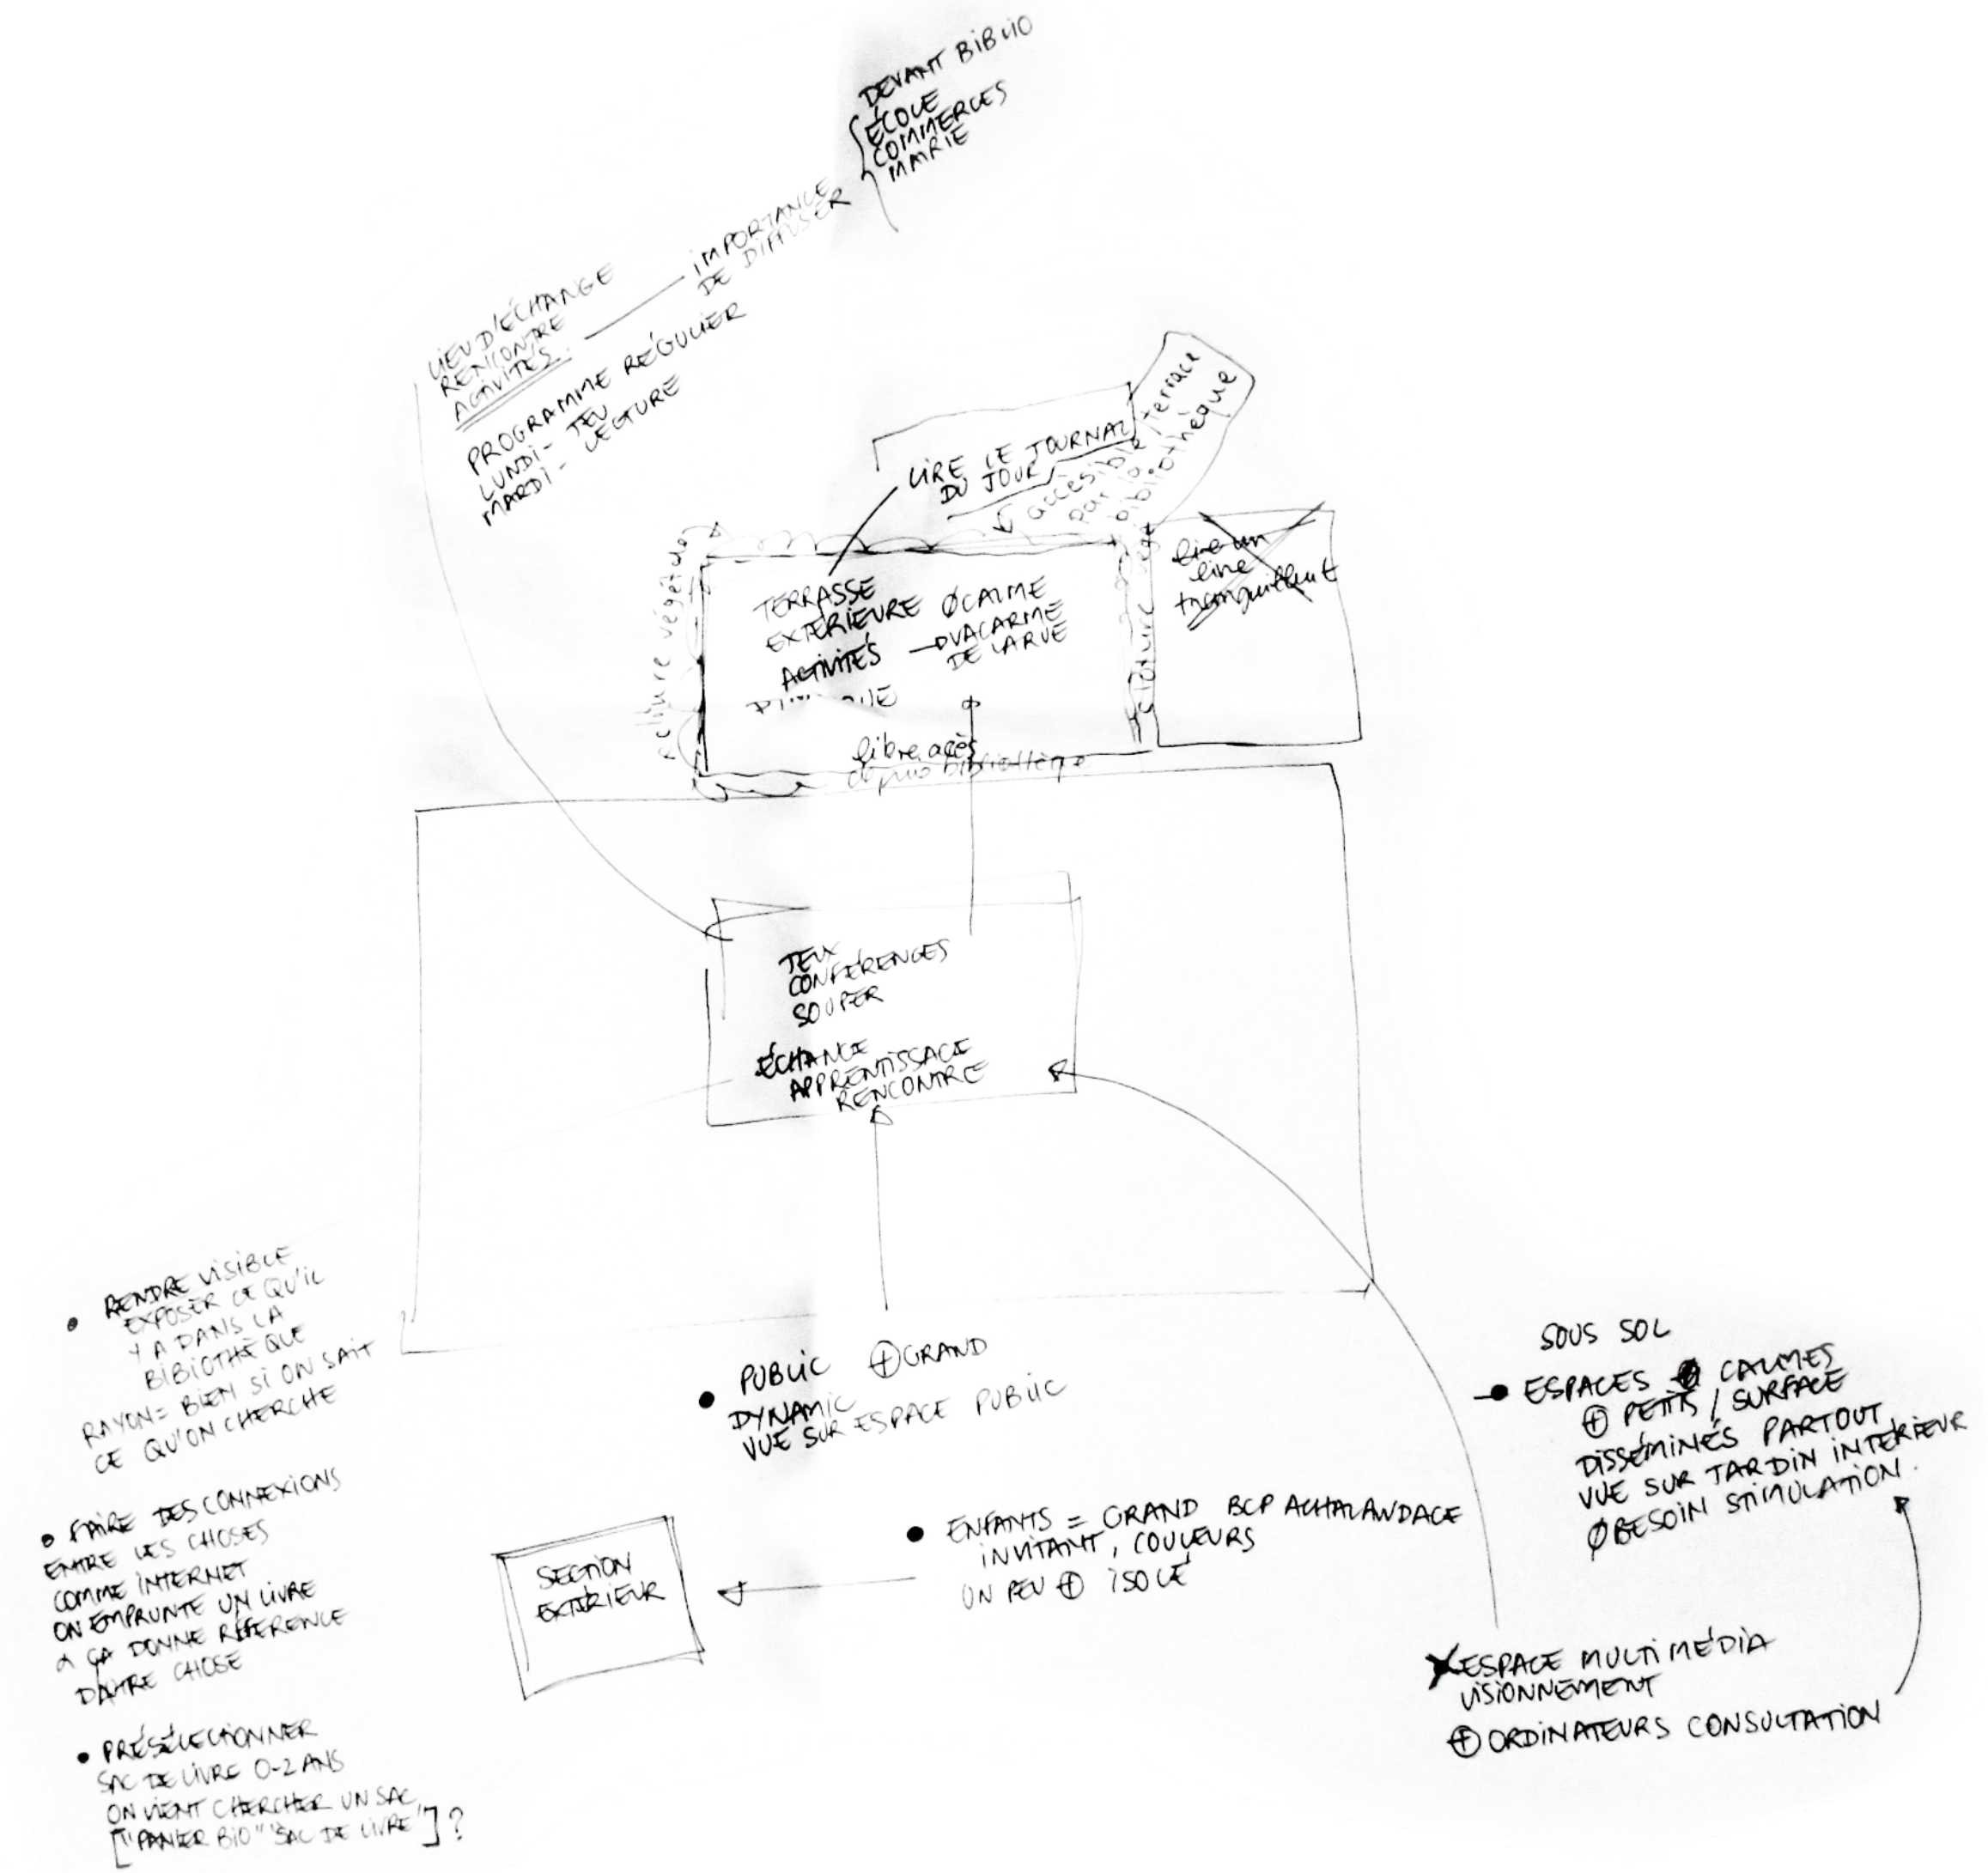 DEVANT BIBLIO
ÉCOLE
COMMERCES
MAIRIE
IMPORTANCE
DE DIFFUSER
LIEU D'ÉCHANGE
RENCONTRE
ACTIVITÉS
PROGRAMME RÉGULIER
LUNDI - JEU
MARDI - LECTURE
LIRE LE JOURNAL
DU JOUR
accèsible / terrace
par la
bibliothèque
clôture végétale
TERRASSE
EXTÉRIEURE
ACTIVITÉS
Ø CALME
VACARME
DE LA RUE
libre accès
depuis bibliothèque
clôture
lire un
livre
JEUX
CONFÉRENCES
SOUPER
ÉCHANGE
APPRENTISSAGE
RENCONTRE
• RENDRE VISIBLE
EXPOSER CE QU'IL
Y A DANS LA
BIBIOTHÈQUE
RAYON = BIEN SI ON SAIT
CE QU'ON CHERCHE
• FAIRE DES CONNEXIONS
ENTRE LES CHOSES
COMME INTERNET
ON EMPRUNTE UN LIVRE
& ÇA DONNE RÉFÉRENCE
D'AUTRE CHOSE
• PRÉSÉLECTIONNER
SAC DE LIVRE 0-2 ANS
ON VIENT CHERCHER UN SAC
["PANIER BIO" "SAC DE LIVRE"] ?
• PUBLIC ⊕ GRAND
DYNAMIC
VUE SUR ESPACE PUBLIC
• ENFANTS = GRAND BCP ACHALANDAGE
INVITANT, COULEURS
UN PEU ⊕ ISOLÉ
SECTION
EXTÉRIEUR
SOUS SOL
• ESPACES CALMES
⊕ PETITS / SURFACE
DISSÉMINÉS PARTOUT
VUE SUR JARDIN INTÉRIEUR
Ø BESOIN STIMULATION.
ESPACE MULTIMÉDIA
VISIONNEMENT
⊕ ORDINATEURS CONSULTATION